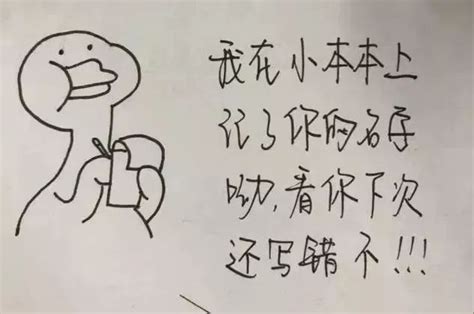 我在小本本上
记了你的名字
呦,看你下次
还写错不!!!